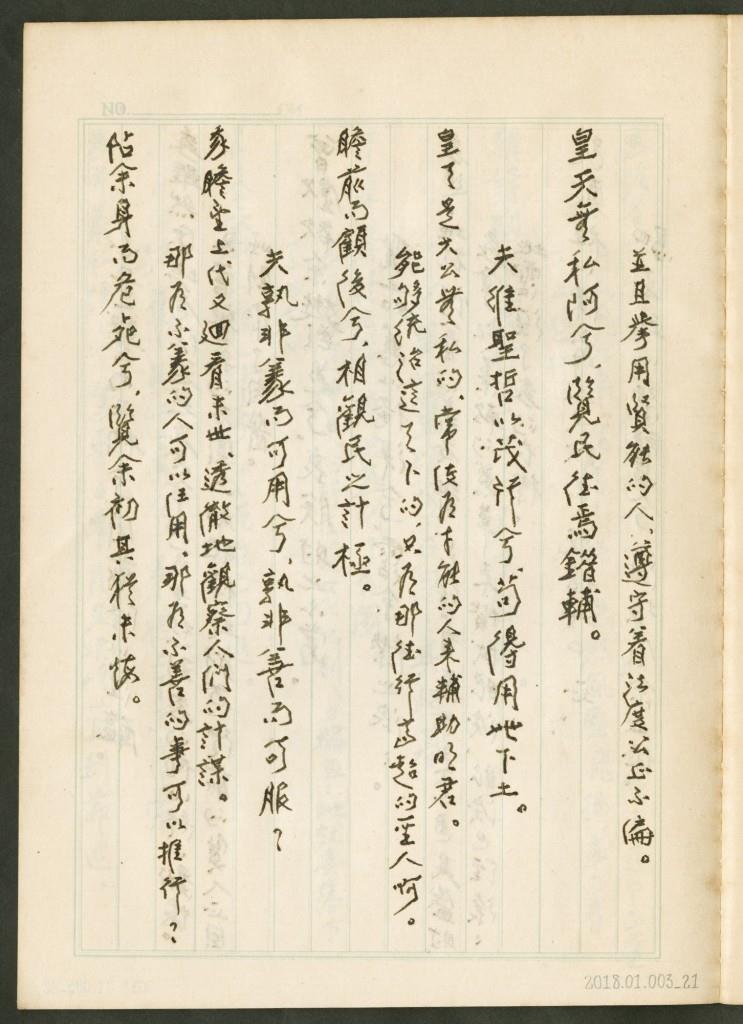 並且舉用賢能的人、遵守着法度公正不偏。
皇天無私阿兮、覽民德焉錯輔。
夫維聖哲以茂行兮、苟得用此下土。
皇天是大公無私的、常使有才能的人來輔助明君。
能够統治這天下的、只有那德行高超的聖人啊。
瞻前而顧後兮、相觀民之計極。
夫孰非義而可用兮、孰非善而可服？
我瞻望上代又迴看末世、透徹地觀察人們的計謀。
那有不義的人可以任用、那有不善的事可以推行？
阽余身而危死兮、覽余初其猶未悔。
2018.01.003_21